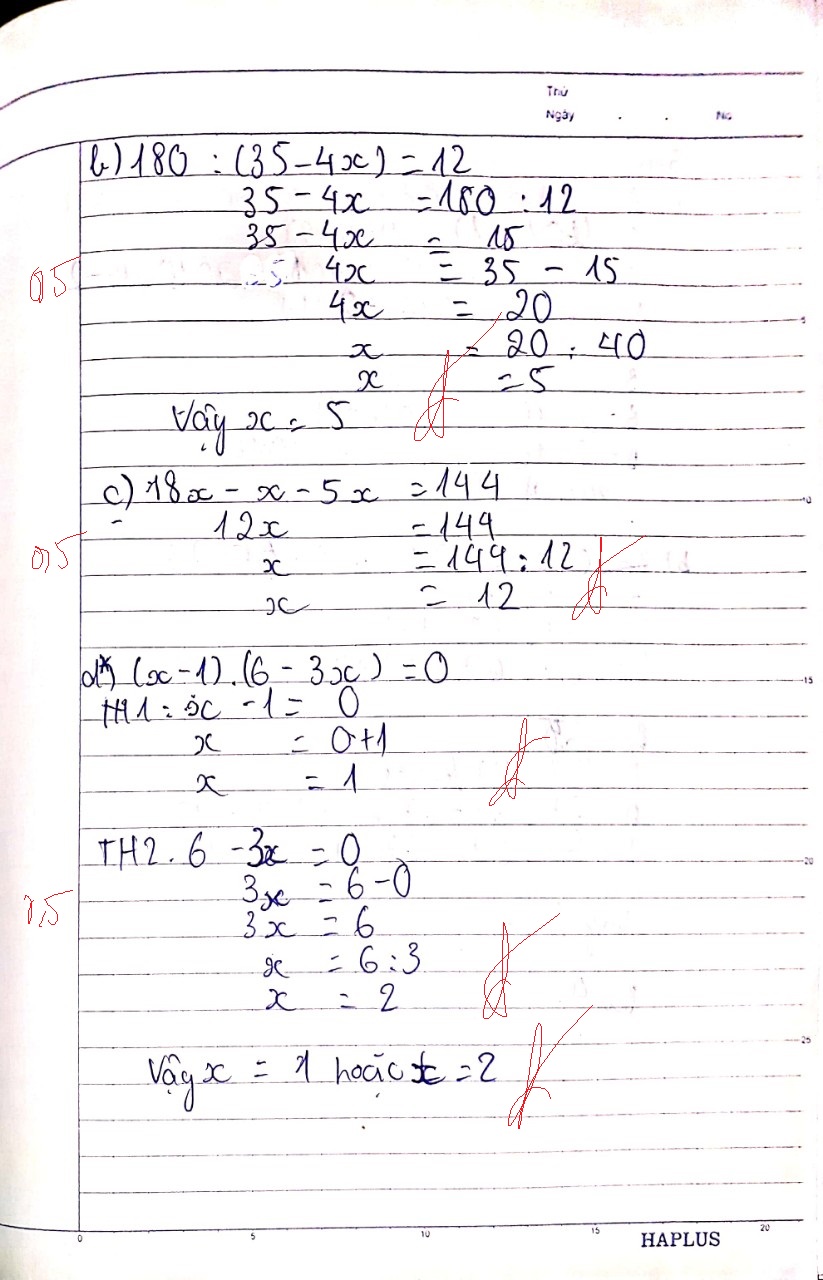 Thứ
Ngày . . No
b) 180 : (35 - 4x) = 12
35 - 4x = 180 : 12
35 - 4x = 15
0,5
4x = 35 - 15
4x = 20
x = 20 : 40
x = 5
Vậy x = 5
c) 18x - x - 5x = 144
12x = 144
0,5
x = 144 : 12
x = 12
d*) (x - 1) . (6 - 3x) = 0
TH1 : x - 1 = 0
x = 0 + 1
x = 1
TH2. 6 - 3x = 0
3x = 6 - 0
3x = 6
x = 6 : 3
x = 2
Vậy x = 1 hoặc x = 2
5
10
15
20
25
0 5 10 15 20
HAPLUS